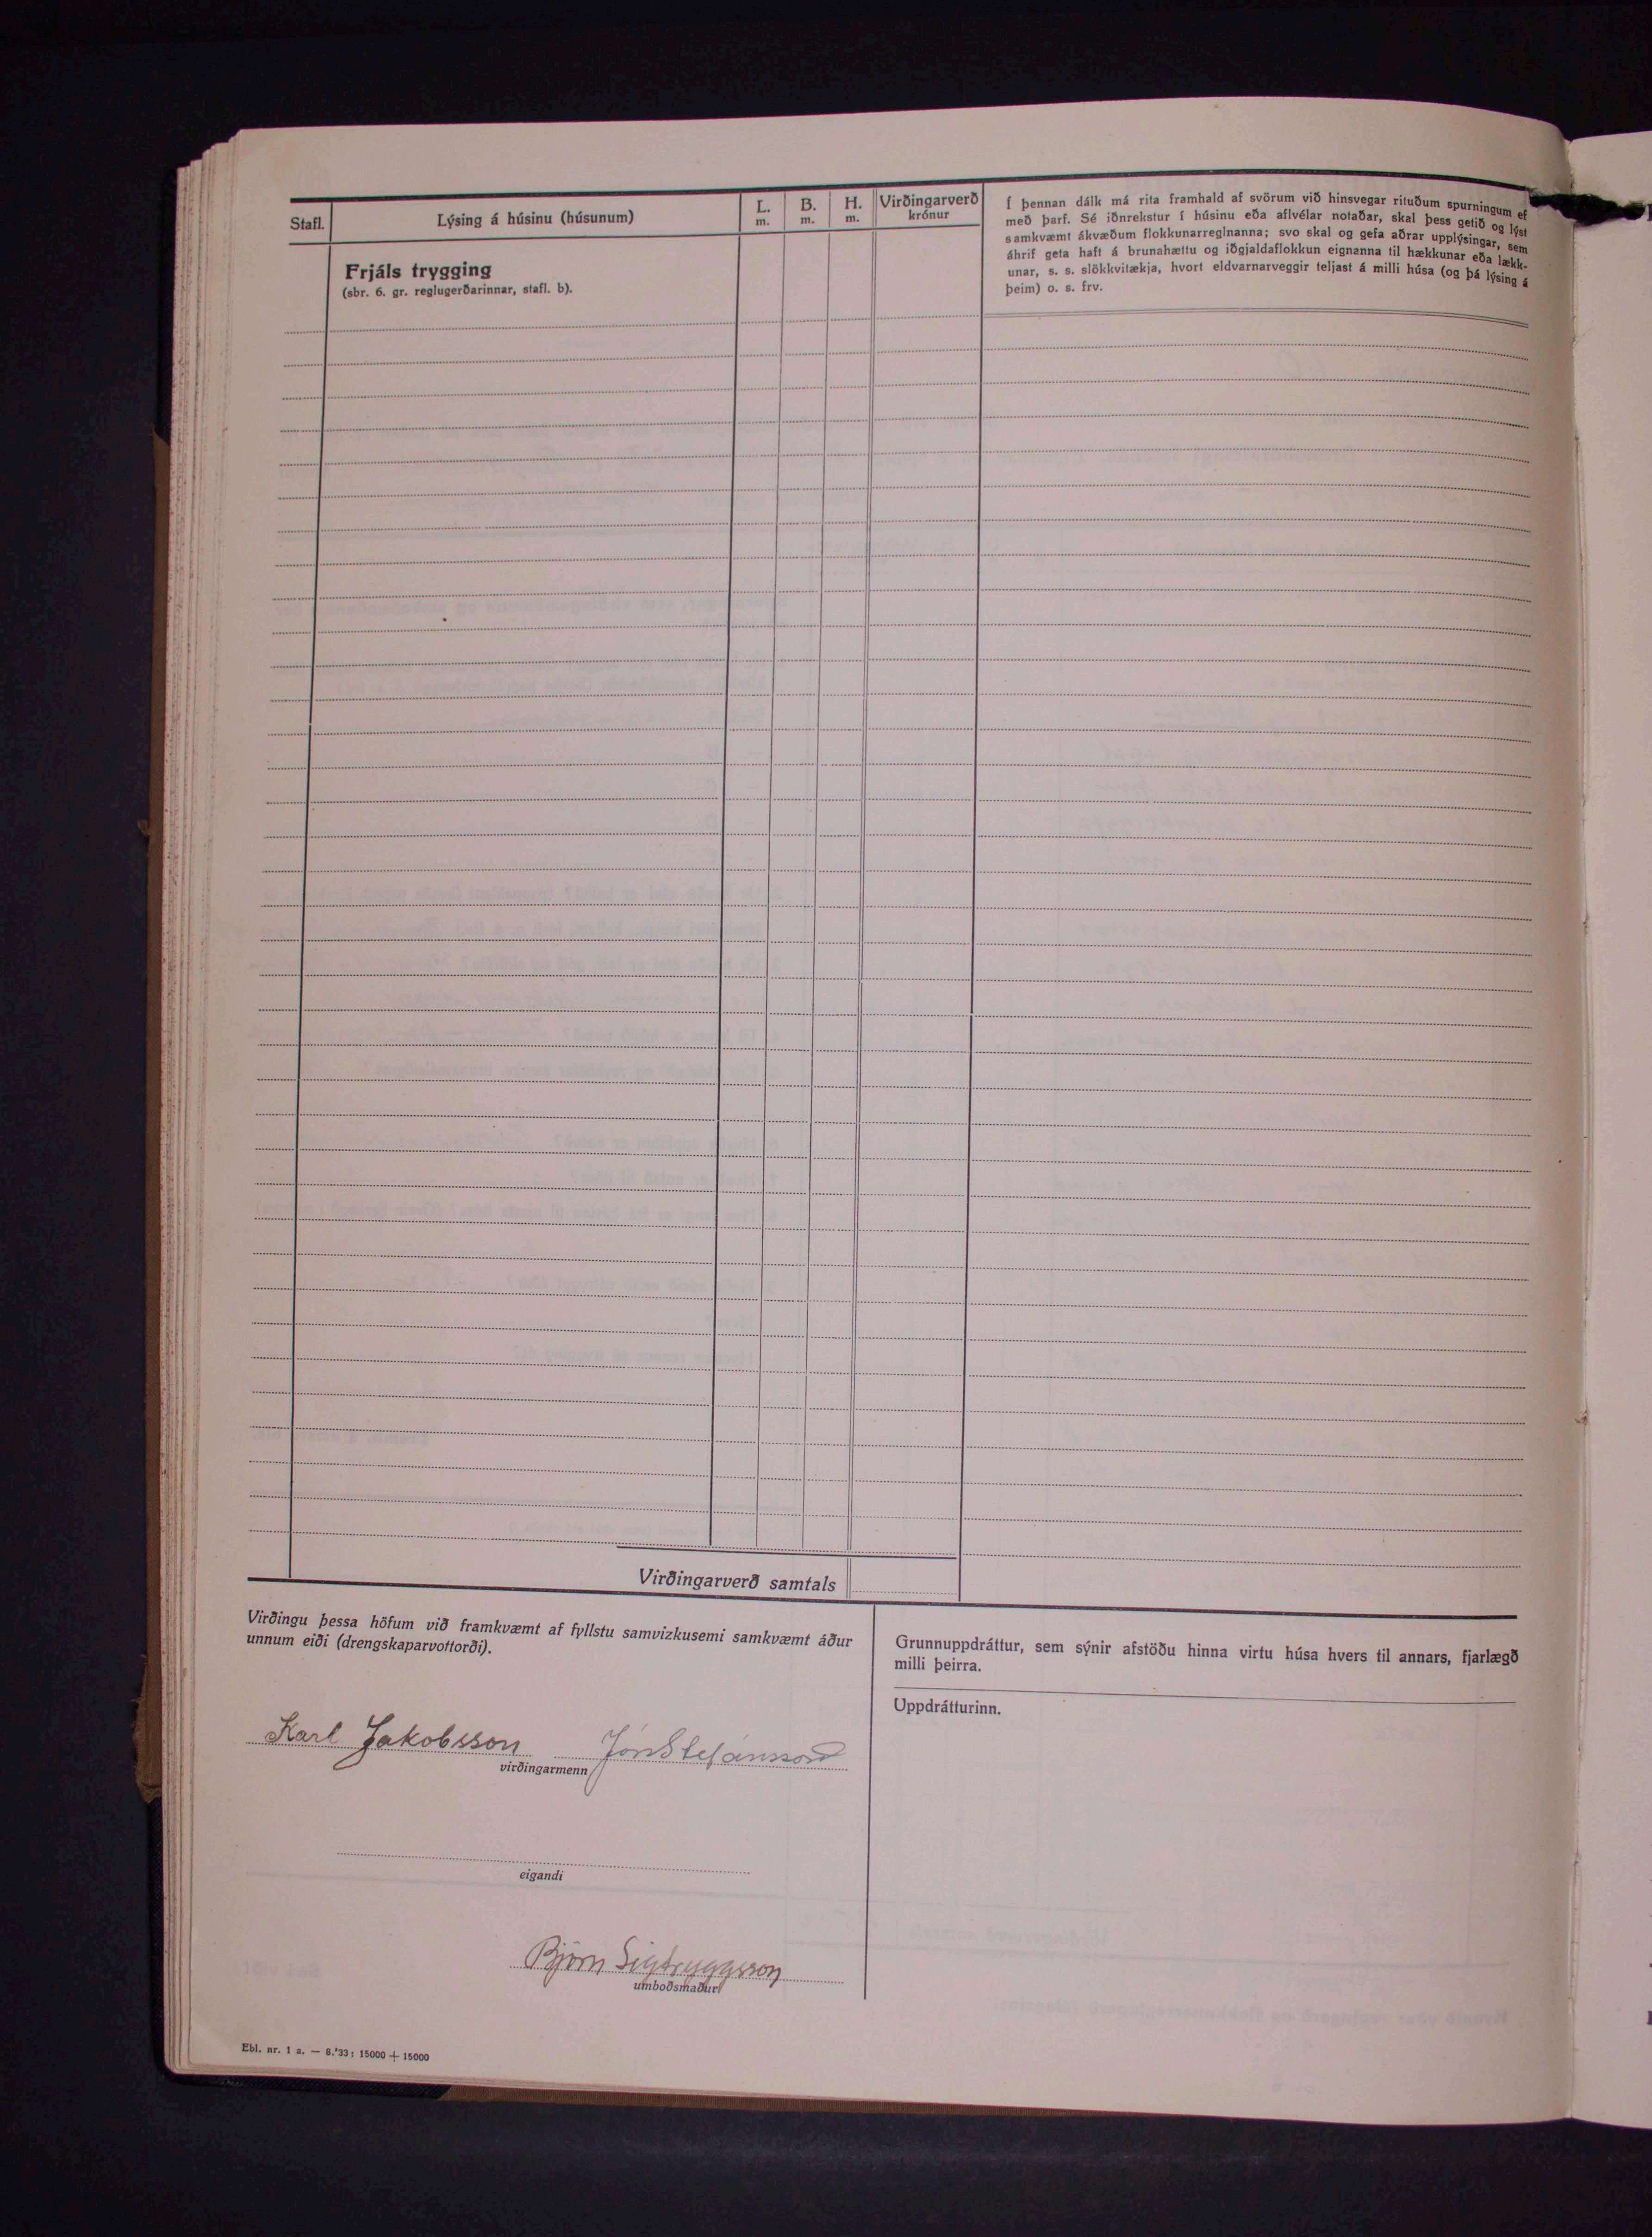 Stafl.
Lýsing á húsinu (húsunum)
L.
m.
B.
m.
H.
m.
Virðingarverð
krónur
Í þennan dálk má rita framhald af svörum við hinsvegar rituðum spurningum ef
með þarf. Sé iðnrekstur í húsinu eða aflvélar notaðar, skal þess getið og lýst
samkvæmt ákvæðum flokkunarreglnanna; svo skal og gefa aðrar upplýsingar, sem
áhrif geta haft á brunahættu og iðgjaldaflokkun eignanna til hækkunar eða lækk-
unar, s. s. slökkvitækja, hvort eldvarnarveggir teljast á milli húsa (og þá lýsing á
þeim) o. s. frv.
Frjáls trygging
(sbr. 6. gr. reglugerðarinnar, stafl. b).
Virðingarverð samtals
Virðingu þessa höfum við framkvæmt af fyllstu samvizkusemi samkvæmt áður
unnum eiði (drengskaparvottorði).
Karl Jakobsson Jón Stefánsson
virðingarmenn
eigandi
Björn Sigtryggsson
umboðsmaður
Grunnuppdráttur, sem sýnir afstöðu hinna virtu húsa hvers til annars, fjarlægð
milli þeirra.
Uppdrátturinn.
Ebl. nr. 1 a. — 8.'33: 15000 + 15000